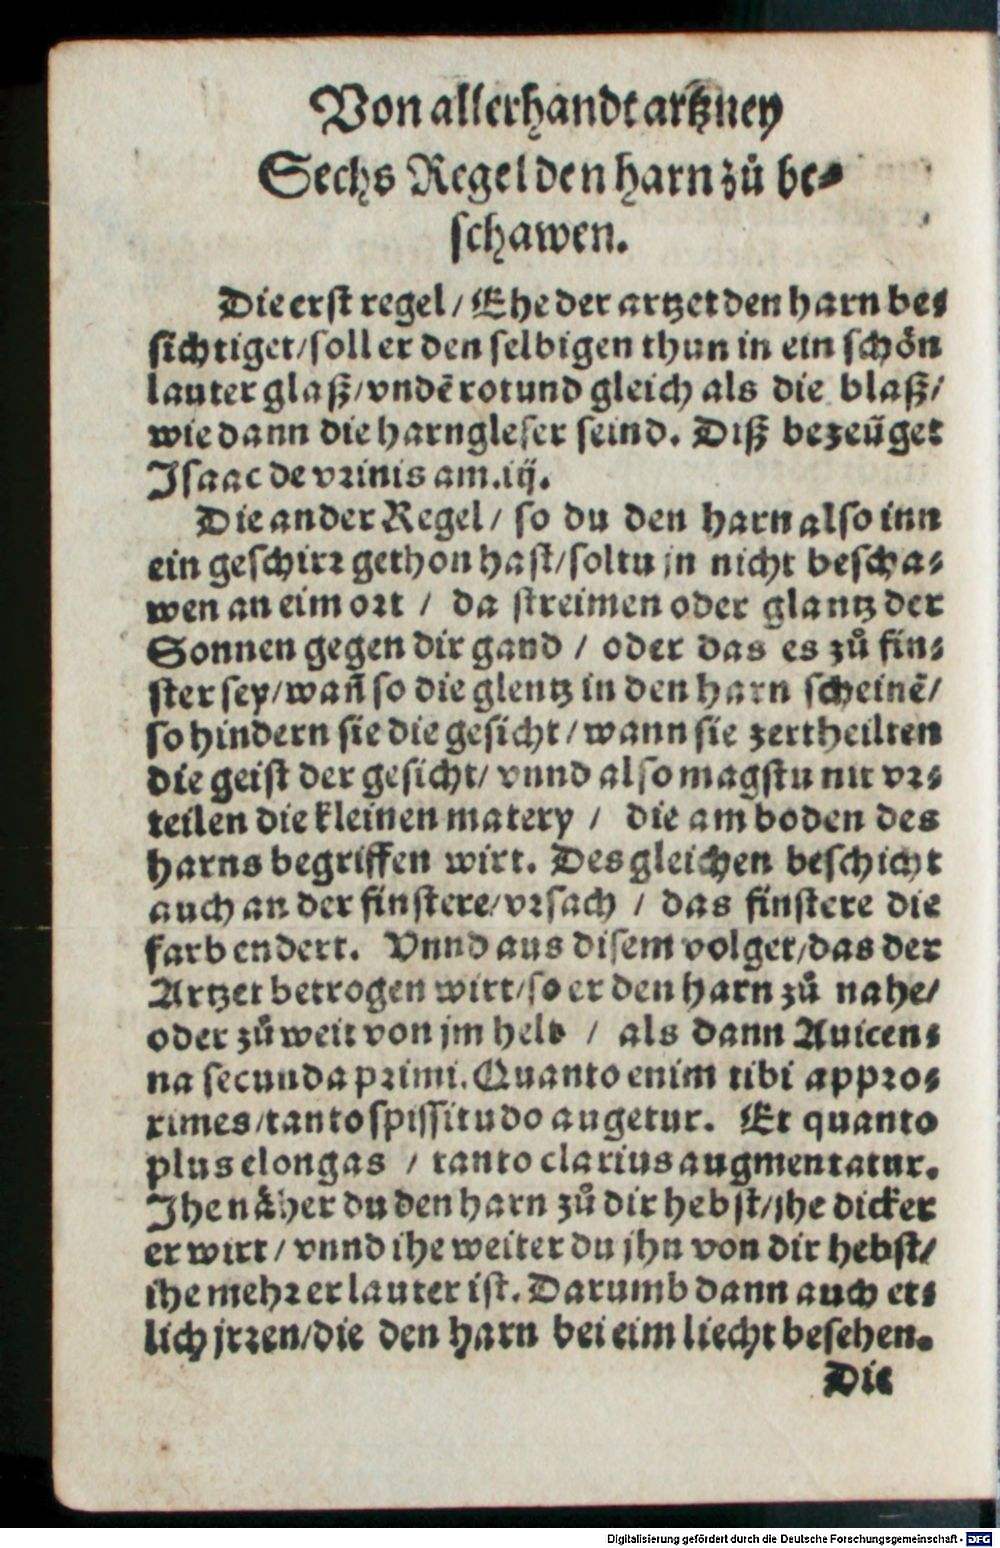 Von allerhandt artzney
Sechs Regel den harn zů be-
schawen.
Die erst regel / Ehe der artzet den harn be-
sichtiget / soll er den selbigen thun in ein schön
lauter glaß / vndē rotund gleich als die blaß /
wie dann die harngleser seind. Diß bezeüget
Isaac de vrinis am .iij.
Die ander Regel / so du den harn also inn
ein geschirr gethon hast / soltu jn nicht bescha-
wen an eim ort / da streimen oder glantz der
Sonnen gegen dir gand / oder das es zů fin-
ster sey / wañ so die glentz in den harn scheinē /
so hindern sie die gesicht / wann sie zertheilten
die geist der gesicht / vnnd also magstu nit vr-
teilen die kleinen matery / die am boden des
harns begriffen wirt. Desgleichen beschicht
auch an der finstere / vrsach / das finstere die
farb endert. Vnnd aus disem volget / das der
Artzet betrogen wirt / so er den harn zů nahe /
oder zů weit von jm helt / als dann Auicen-
na secunda primi. Quanto enim tibi appro-
ximes / tanto spissitudo augetur. Et quanto
plus elongas / tanto clarius augmentatur.
Jhe näher du den harn zů dir hebst / jhe dicker
er wirt / vnnd ihe weiter du jhn von dir hebst /
ihe mehr er lauter ist. Darumb dann auch et-
lich jrren / die den harn bei eim liecht besehen.
Die
Digitalisierung gefördert durch die Deutsche Forschungsgemeinschaft - DFG